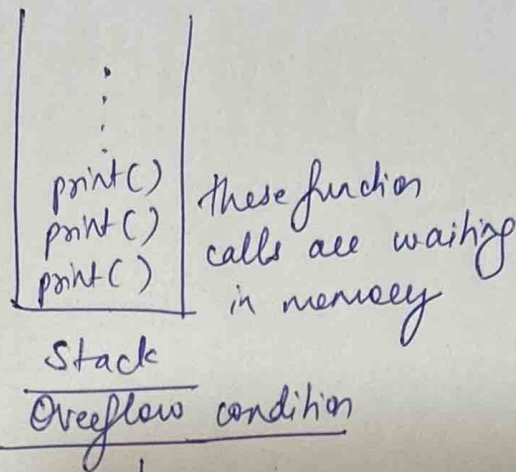 print()
print()
print()
these function
calls are waiting
in memory
Stack
Overflow condition